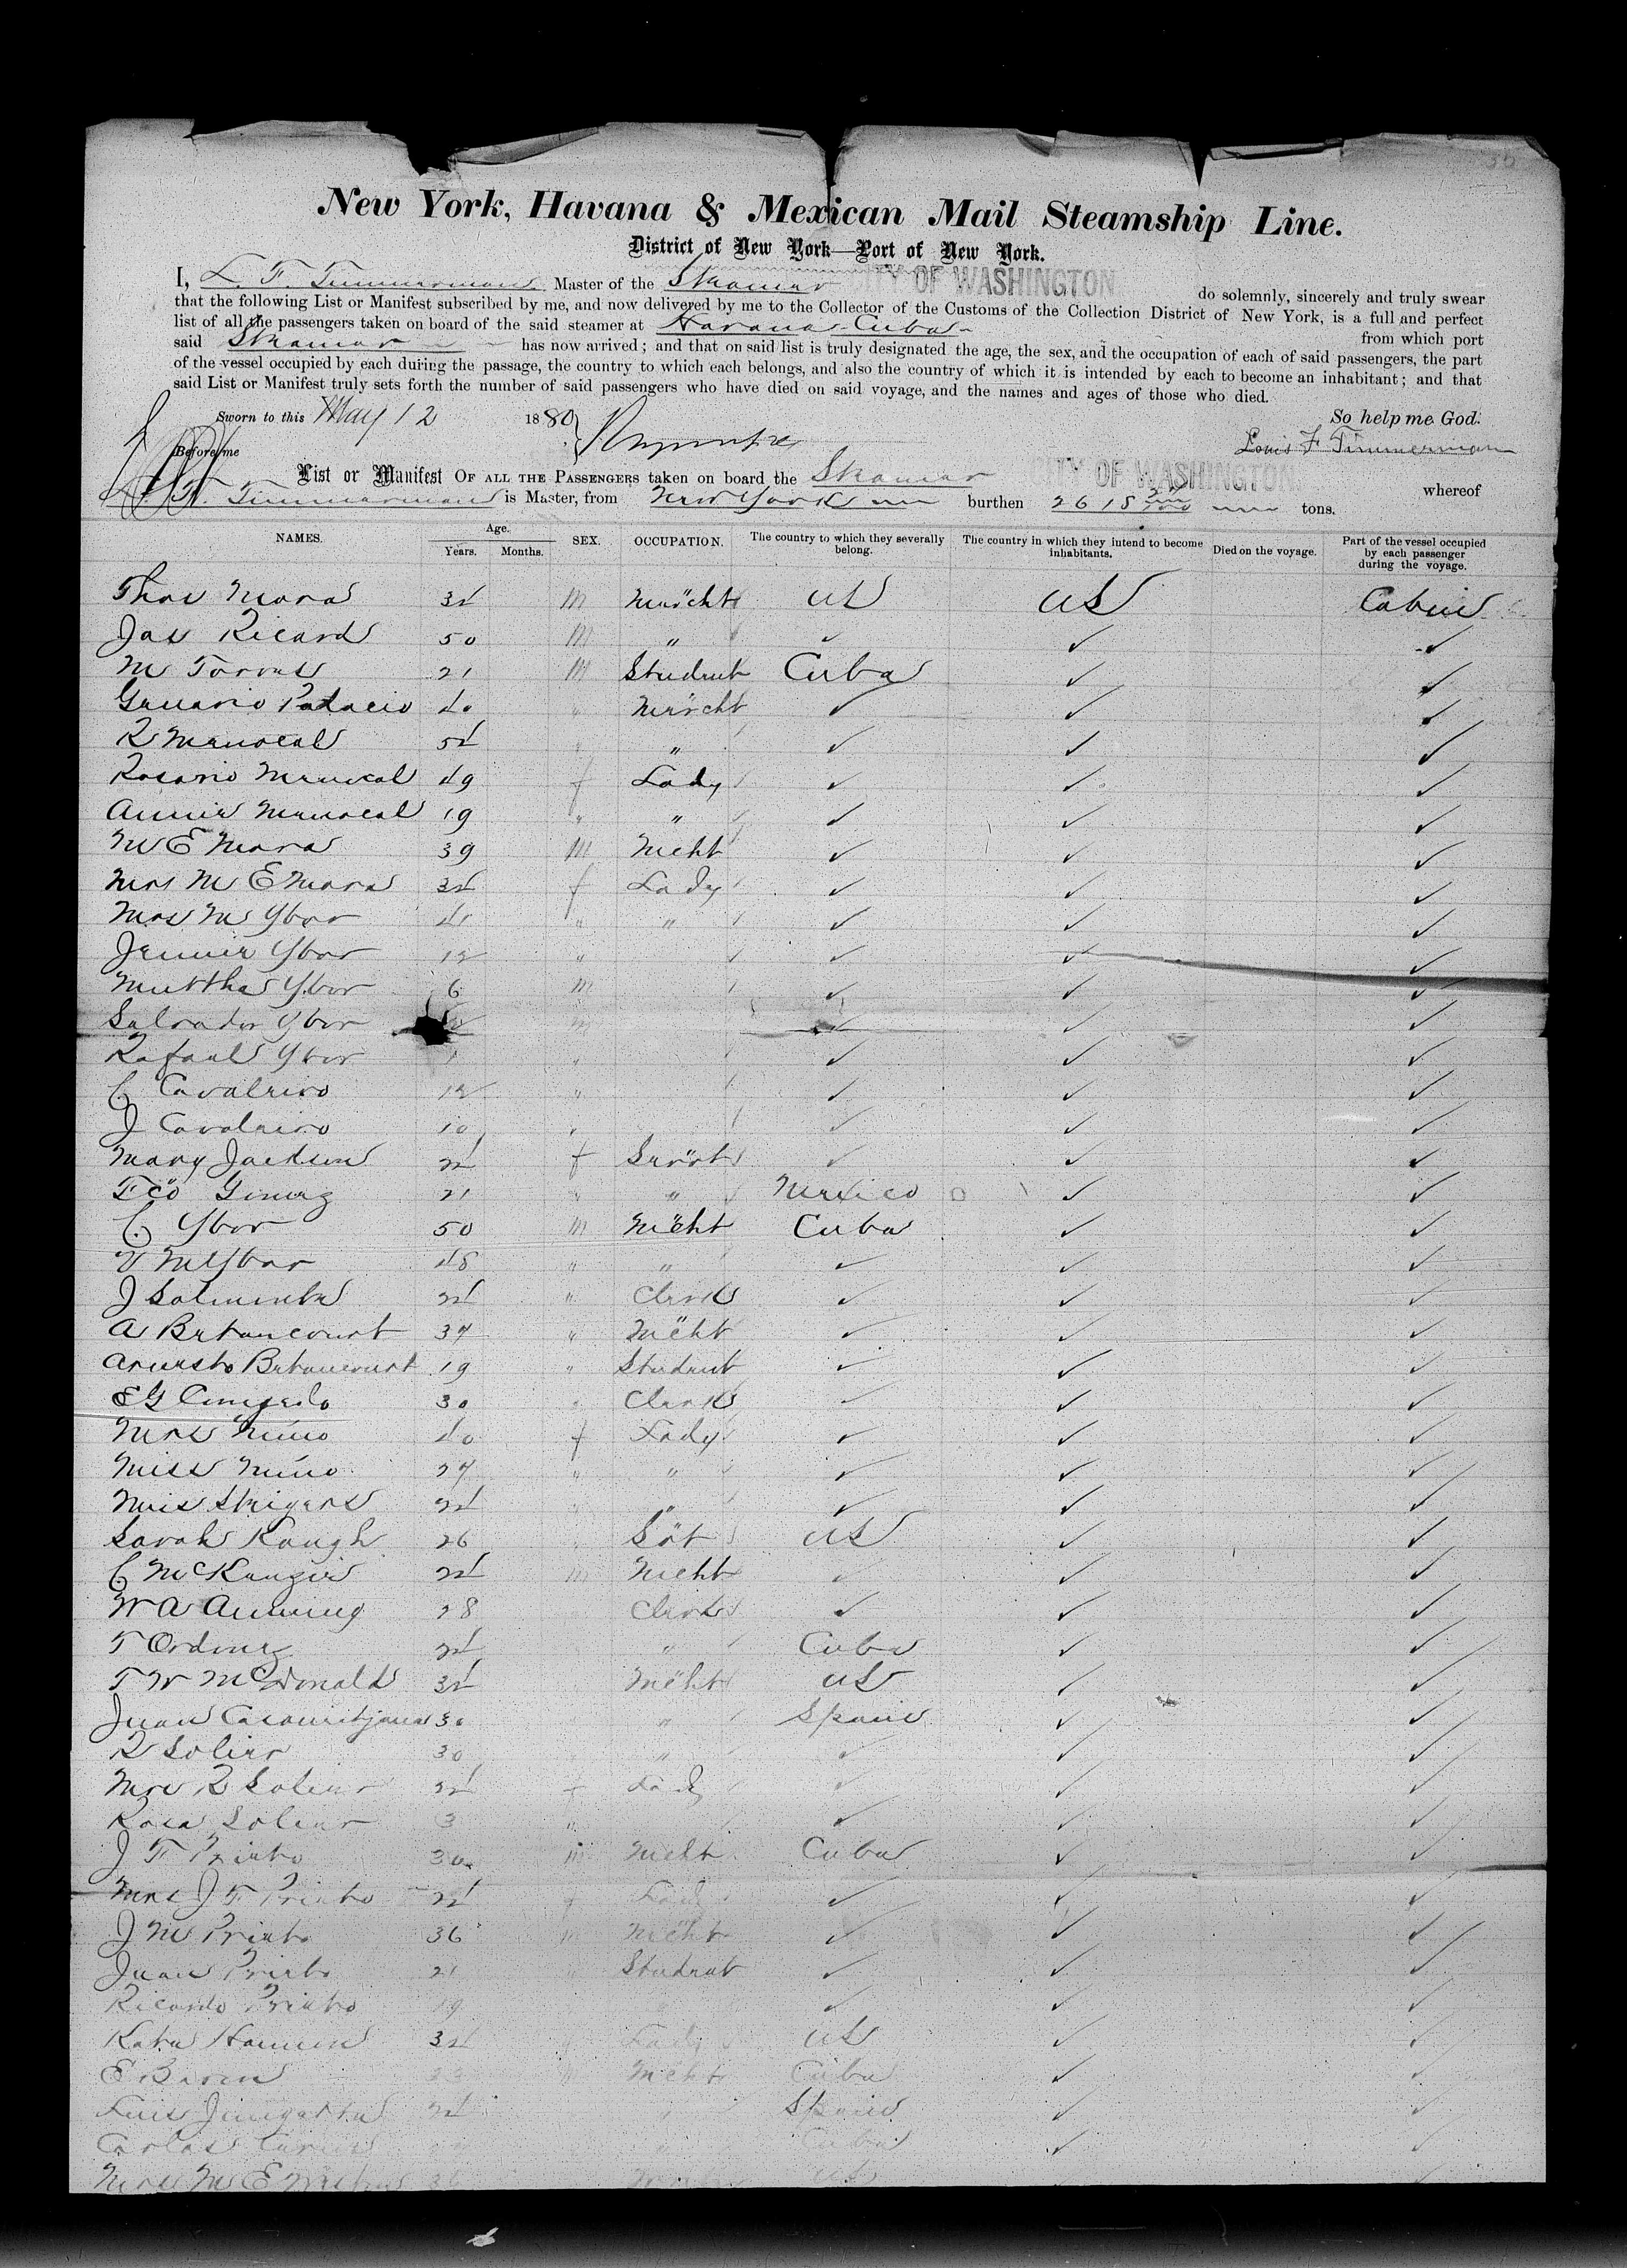 New York, Havana & Mexican Mail Steamship Line.
District of New York—Port of New York.
I, L. F. Timmerman Master of the Steamer CITY OF WASHINGTON do solemnly, sincerely and truly swear
that the following List or Manifest subscribed by me, and now delivered by me to the Collector of the Customs of the Collection District of New York, is a full and perfect
list of all the passengers taken on board of the said steamer at Havana Cuba from which port
said Steamer has now arrived; and that on said list is truly designated the age, the sex, and the occupation of each of said passengers, the part
of the vessel occupied by each during the passage, the country to which each belongs, and also the country of which it is intended by each to become an inhabitant; and that
said List or Manifest truly sets forth the number of said passengers who have died on said voyage, and the names and ages of those who died.
Sworn to this May 12 1880 So help me God.
Before me Louis F Timmerman
List or Manifest OF ALL THE PASSENGERS taken on board the Steamer CITY OF WASHINGTON whereof
L. F. Timmerman is Master, from New York burthen 2618 tons.
NAMES. Age. Years. Months. SEX. OCCUPATION. The country to which they severally belong. The country in which they intend to become inhabitants. Died on the voyage. Part of the vessel occupied by each passenger during the voyage.
Thos Mora 34 m Mercht US US Cabin
Jas Ricard 50 m " ✓ ✓ ✓
M Torres 21 m Student Cuba ✓ ✓
Genario Palacio 40 " Mercht ✓ ✓ ✓
R Menocal 54 " " ✓ ✓ ✓
Rosario Menocal 49 f Lady ✓ ✓ ✓
Annie Menocal 19 " " ✓ ✓ ✓
M E Mora 39 m Mcht ✓ ✓ ✓
Mrs M E Mora 34 f Lady ✓ ✓ ✓
Mrs M Ybor 41 " " ✓ ✓ ✓
Jennie Ybor 12 " ✓ ✓ ✓
Ybor 6 m ✓ ✓ ✓
Salvador Ybor m ✓ ✓ ✓
Rafael Ybor " ✓ ✓ ✓
C. Cavaleiro 12 " ✓ ✓ ✓
J Cavaleiro 10 " ✓ ✓ ✓
Mary Jackson 24 f Servt ✓ ✓ ✓
Fco Gomez 21 " " Mexico ✓ ✓
C. Ybor 50 m Mcht Cuba ✓ ✓
V M Ybor 48 " " ✓ ✓ ✓
J 24 " Clerk ✓ ✓ ✓
A Betancourt 37 " Mcht ✓ ✓ ✓
Ernesto Betancourt 19 " Student ✓ ✓ ✓
E G 30 " Clerk ✓ ✓ ✓
Mrs Nuno 40 f Lady ✓ ✓ ✓
Miss Nuno 27 " " ✓ ✓ ✓
Miss 24 " " ✓ ✓ ✓
Sarah Keough 26 " Svt US ✓ ✓
C McKenzie 24 m Mcht ✓ ✓ ✓
W A 28 Clerk ✓ ✓ ✓
T Ordonez 24 " Cuba ✓ ✓
T W McDonald 34 Mcht US ✓ ✓
Juan 30 " Spain ✓ ✓
R Soler 30 " ✓ ✓ ✓
Mrs R Soler 24 f Lady ✓ ✓ ✓
Rosa Soler 3 " ✓ ✓ ✓
J F Prieto 30 m Mcht Cuba ✓ ✓
Mrs J F Prieto 24 f Lady ✓ ✓ ✓
J M Prieto 36 m Mcht ✓ ✓ ✓
Juan Prieto 21 " Student ✓ ✓ ✓
Ricardo Prieto 19 " ✓ ✓ ✓
Kate 34 Lady US ✓ ✓
E Mcht Cuba ✓ ✓
Luis 24 " Spain ✓ ✓
Carlos " Cuba ✓ ✓
Mrs M E